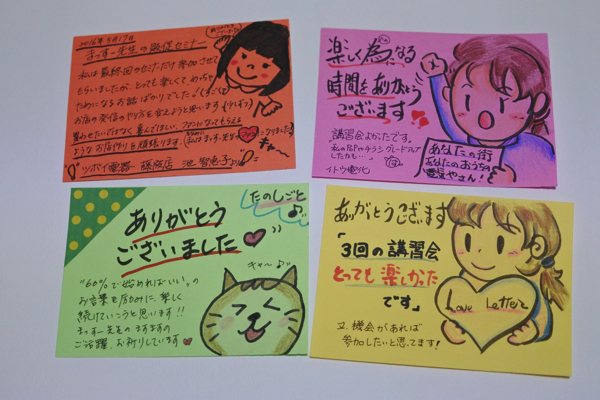 2016年3月17日
まっすー先生の販促セミナー
私は最終回のセミナーだけ参加させて
もらいましたが、とっても楽しくてめっちゃ
ためになるお話ばかりでした。
お店の発信のやり方を変えようと思います
買わせたいではなく喜んでほしい、ファンになってもらえる
ようなお店作りを頑張ります
キャー
ツボイ電器
楽しく為になる
時間をありがとう
ございます
講習会よかったです。
私のPOPやチラシグレードUP
したかも…
イトウ電化
あなたの街
あなたのおうちの
電気やさん!
たのしごと
ありがとう
ございました
キャハ
"60%で始めればいい"の
お言葉を励みに、楽しく
続けていこうと思います!!
まっすー先生のますますの
ご活躍、お祈りしています
ありがとうございます
「3回の講習会
とっても楽しかった
です」
Love Letter
又、機会があれば
参加したいと思ってます!